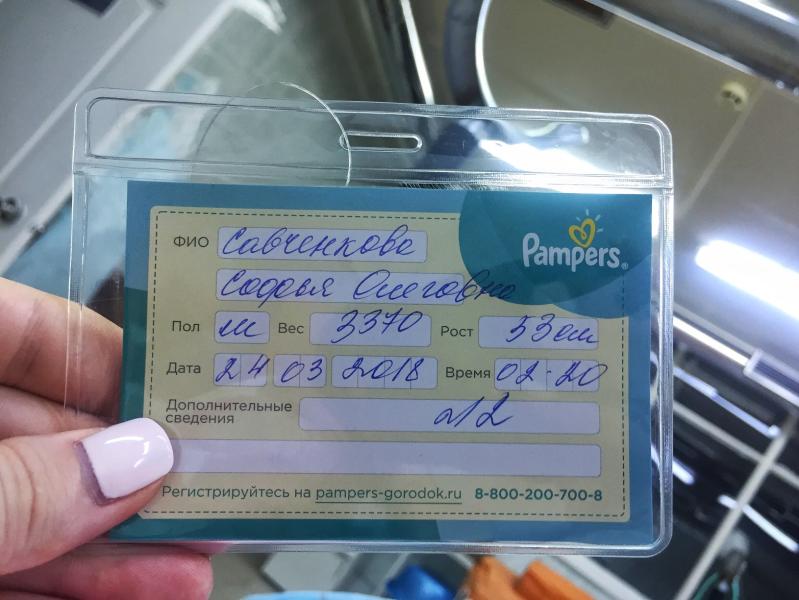 Pampers®
ФИО Савченкова
Софья Олеговна
Пол м Вес 3370 Рост 53 см
Дата 24 03 2018 Время 02-20
Дополнительные
сведения
Регистрируйтесь на pampers-gorodok.ru 8-800-200-700-8